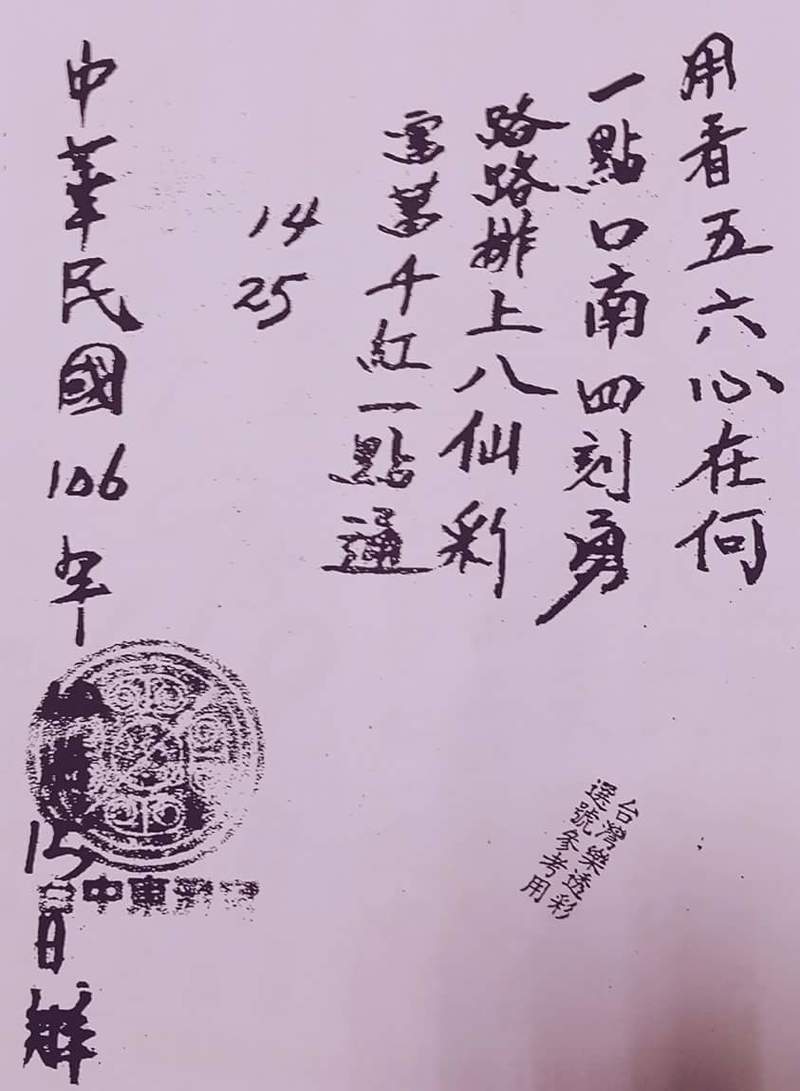 用看五六心在何
一點口南四刻勇
路路排上八仙彩
萬千紅一點通
14
25
中華民國106年
15日
台灣樂透彩
選號參考用